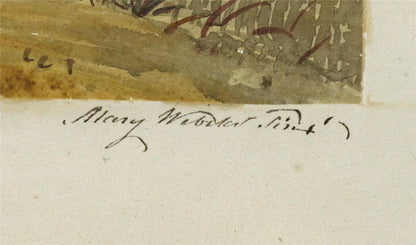 Mary Webster Pinx^t